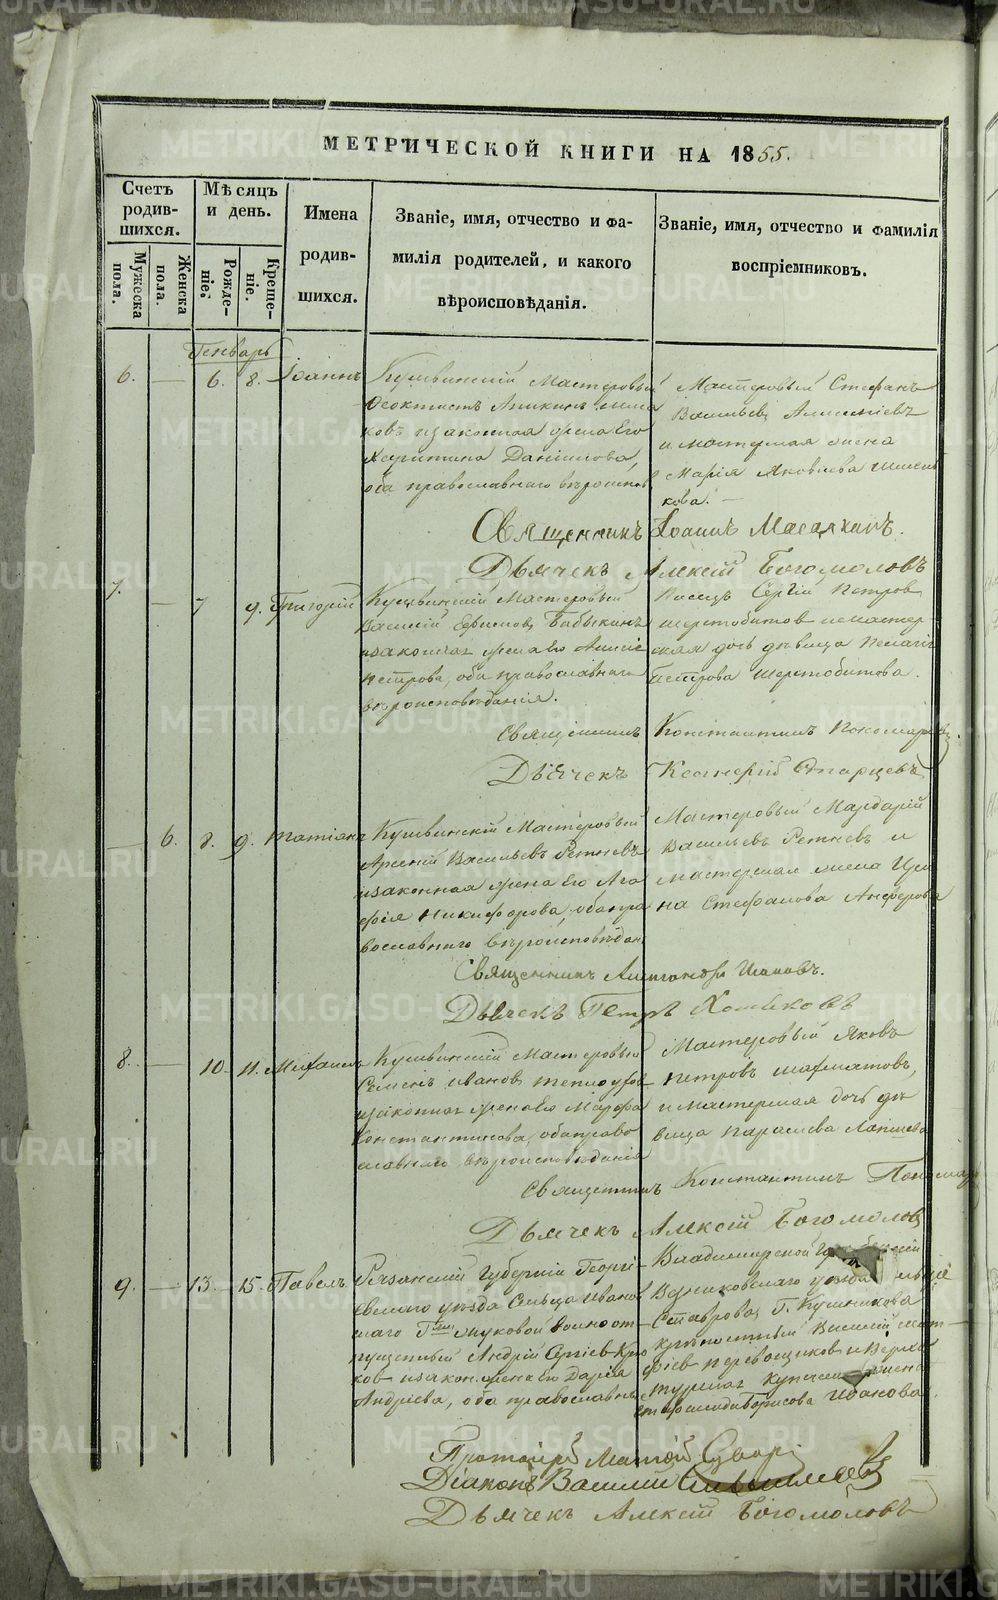 МЕТРИЧЕСКОЙ КНИГИ НА 1855.
Счетъ родив-шихся.
Мѣсяцъ и день.
Имена родив-шихся.
Званіе, имя, отчество и фа-
милія родителей, и какого
вѣроисповѣданія.
Званіе, имя, отчество и фамилія
воспріемниковъ.
Мужеска пола.
Женска пола.
Рожде-ніе.
Креще-ніе.
Генварь
6. — 6. 8. Іоаннъ
Кушвинскій Мастеровый
Феоктистъ
и законная жена Его
Харитина Даніилова,
оба православнаго вѣроиспов
Мастеровый Стефанъ
Васильевъ
и мастерская жена
Марія Яковлева
кова. —
Священникъ Іоаннъ
Дьячекъ Алексій Богомоловъ
7. — 7 9. Григорій
Кушвинскій Мастеровый
Василій Ефимовъ Бабыкинъ
и законная жена Его
Петрова, оба православнаго
вѣроисповѣданія.
Сергій Петров
Шерстобитов и мастер
ская дочь дѣвица Пелагія
Петрова Шерстобитова.
Священникъ Константинъ Пономаревъ.
Дьячекъ Старцевъ
6. 8. 9. Татіана
Кушвинскій Мастеровый
Арсеній Васильевъ Ретневъ
и законная жена Его Ага
фія Никифорова, оба пра
вославнаго вѣроисповѣдан
Мастеровый Мардарій
Васильевъ Ретневъ и
мастерская жена Ири
на Стефанова Анферова
Священникъ Александръ
Дьячекъ Петръ Хомяковъ
8. — 10. 11. Михаилъ
Кушвинскій Мастеровый
Семенъ Ивановъ Теплоухов
и законная жена Его Марфа
Константинова, оба право
славнаго вѣроисповѣданія
Мастеровый Яковъ
Петровъ Шахматовъ,
и мастерская дочь дѣ
вица Параскева Лапшева
Священникъ Константинъ Пономар
Дьячекъ Алексій Богомоловъ
9. — 13. — 15. Павелъ
Рязанской Губерніи Георгі-
евскаго уѣзда Сельца Иванов
скаго Г<sup>жи</sup> Жуковой вольноот-
пущенный Андрій Сергіев
ков и закон. жена Его Дарія
Андріева, оба православнъ
Владимирской
Вязниковскаго уѣзда
Ставрова, Г. Кушникова
крѣпостный Василій Мат-
фіев Перевощиков и Верхо
турская купеческая жена
Борисова Иванова.
Протоіерей Матфій
Діаконъ Василій
Дьячекъ Алексій Богомоловъ
METRIKI.GASO-URAL.RU